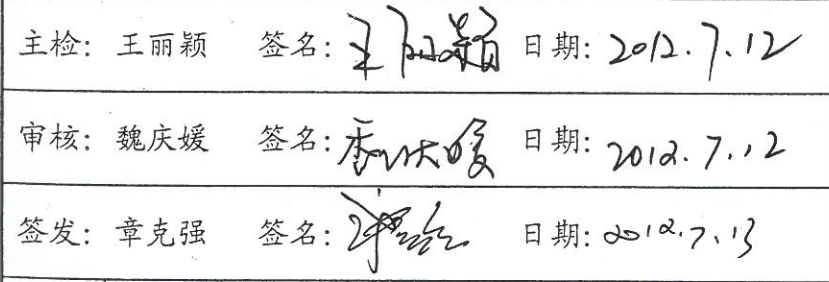 主检: 王丽颖 签名: 王丽颖 日期: 2012.7.12
审核: 魏庆媛 签名: 魏庆媛 日期: 2012.7.12
签发: 章克强 签名: 日期: 2012.7.13